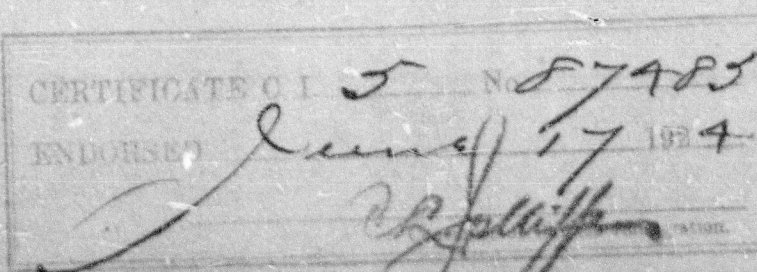 CERTIFICATE C I 5 No 87485
ENDORSED June 17 1924